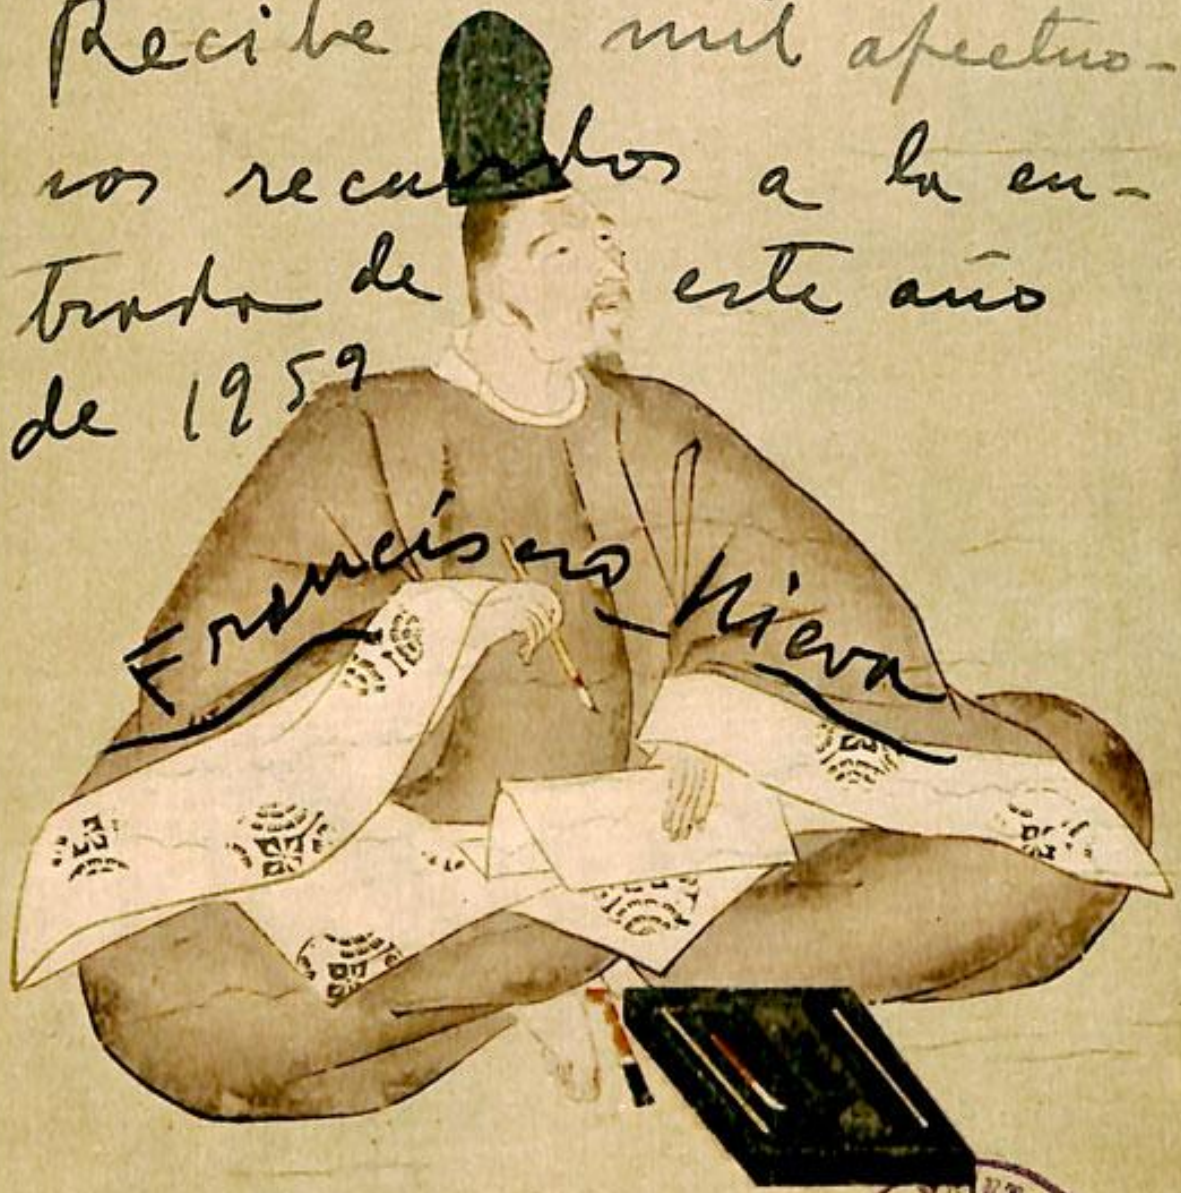 Recibe mil afectuo-
sos recuerdos a la en-
trada de este año
de 1959
Francisco Nieva